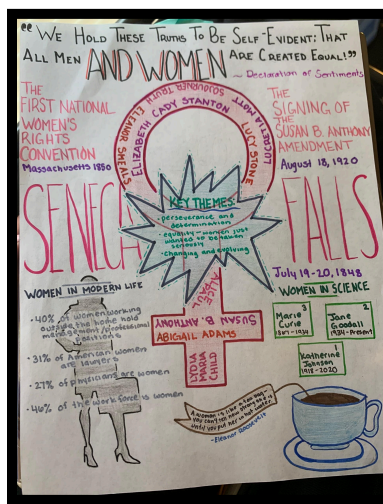 "WE HOLD THESE TRUTHS TO BE SELF-EVIDENT; THAT
ALL MEN AND WOMEN ARE CREATED EQUAL!"
~ Declaration of Sentiments
THE
FIRST NATIONAL
WOMEN'S
RIGHTS
CONVENTION
Massachusetts 1850
ELEANOR
SOJOURNER TRUTH
ELIZABETH CADY STANTON
LUCRETIA MOTT
LUCY STONE
THE
SIGNING OF
THE
SUSAN B. ANTHONY
AMENDMENT
August 18, 1920
SENECA
FALLS
KEY THEMES:
• perseverance and
determination
• equality - women just
wanted to be taken
seriously
• Changing and evolving
July 19-20, 1848
ALICE
SUSAN B. ANTHONY
ABIGAIL ADAMS
LYDIA
MARIA
CHILD
WOMEN IN MODERN LIFE
• 40% of women working
outside the home hold
management/professional
positions
• 31% of American women
are lawyers
• 27% of physicians are women
• 46% of the workforce is women
WOMEN IN SCIENCE
3
Marie
Curie
1867-1934
2
Jane
Goodall
1934-Present
1
Katherine
Johnson
1918-2020
A woman is like a tea bag -
you can't tell how strong she is
until you put her in hot water.
-Eleanor Roosevelt